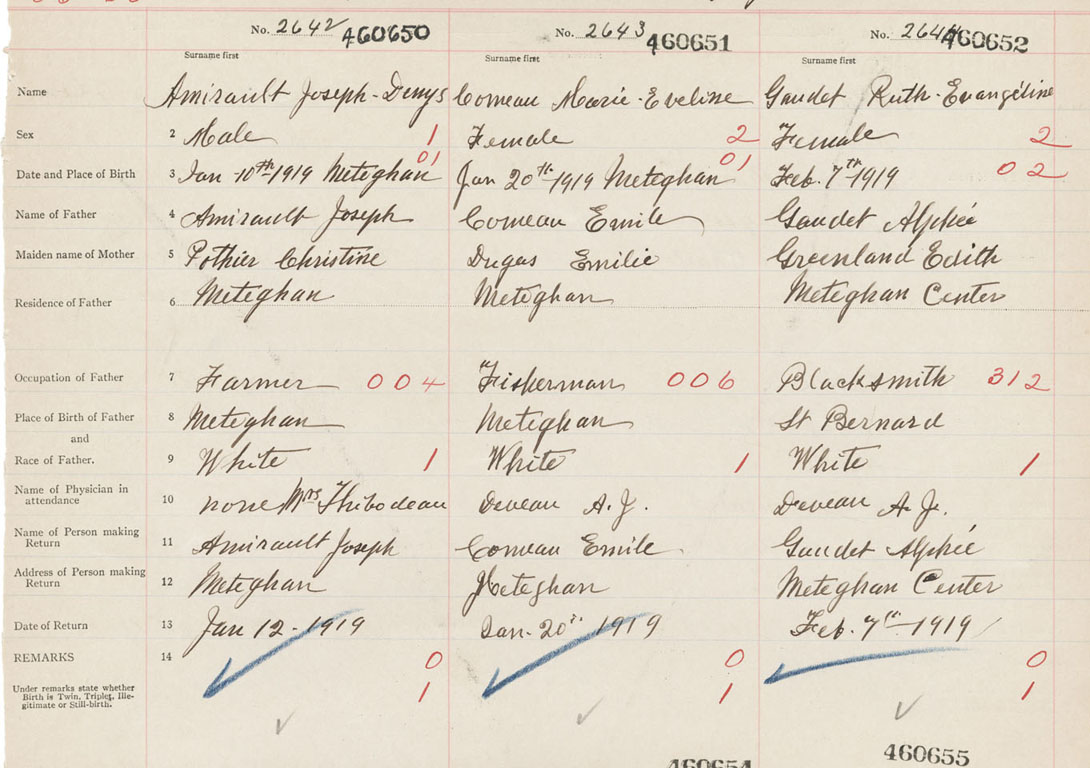 No. 2642 460650 No. 2643 460651 No. 2644 460652
Surname first Surname first Surname first
Name Amirault Joseph-Denys Comeau Marie-Eveline Gaudet Ruth-Evangéline
Sex 2 Male 1 Female 2 Female 2
01 01
Date and Place of Birth 3 Jan 10th 1919 Meteghan Jan 20th 1919 Meteghan Feb. 7th 1919 02
Name of Father 4 Amirault Joseph Comeau Emile Gaudet Alphée
Maiden name of Mother 5 Pothier Christine Dugas Emilie Greenland Edith
Residence of Father 6 Meteghan Meteghan Meteghan Center
Occupation of Father 7 Farmer 004 Fisherman 006 Blacksmith 312
Place of Birth of Father 8 Meteghan Meteghan St Bernard
and
Race of Father. 9 White 1 White 1 White 1
Name of Physician in
attendance 10 none Mrs Thibodeau Deveau A. J. Deveau A. J.
Name of Person making
Return 11 Amirault Joseph Comeau Emile Gaudet Alphée
Address of Person making
Return 12 Meteghan Meteghan Meteghan Center
Date of Return 13 Jan 12-1919 Jan. 20th 1919 Feb. 7th 1919
REMARKS 14 0 0 0
Under remarks state whether
Birth is Twin, Triplet, Ille-
gitimate or Still-birth. 1 1 1
460654 460655